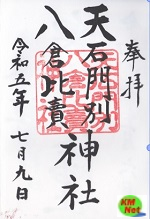 奉拝
天石門別
八倉比賣神社
令和五年七月九日
KM
Net